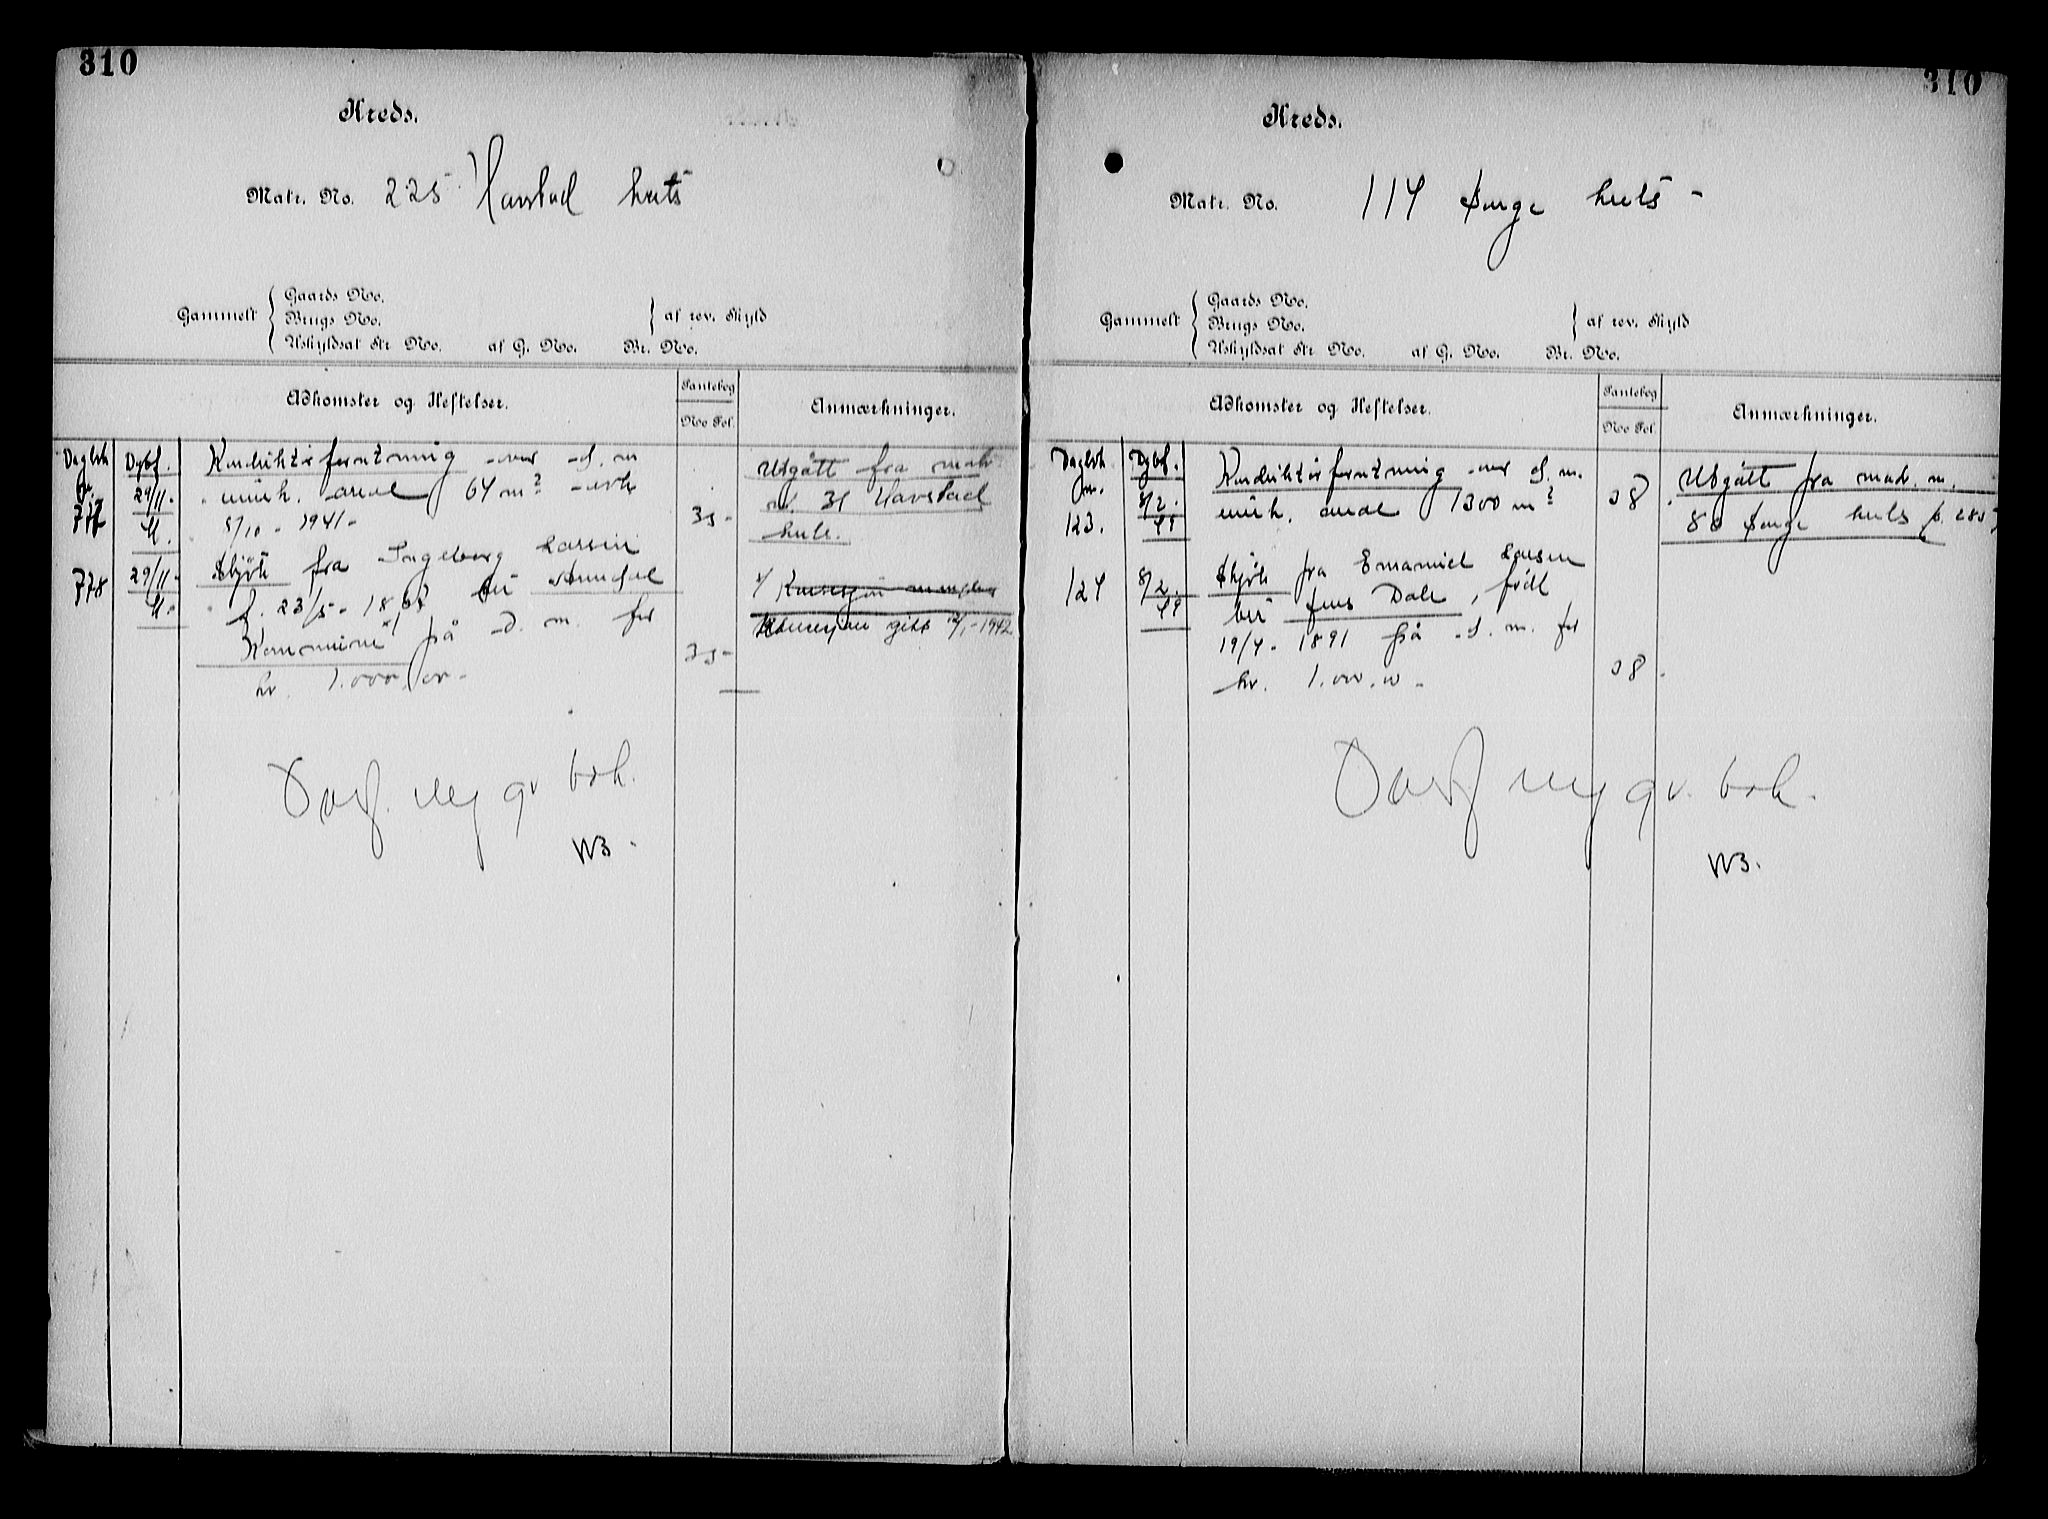 310
Kreds.
Matr. No. 225 Havstad
Gammelt
Gaards No.
Brugs No.
Uskyldsat Str No. af G. No. Br. No.
af rev. Skyld
Adkomster og Heftelser.
Pantebog
No Fol.
Anmærkninger.
Dagbok Dgbf.
nr. 29/11-
777 41.
Konduktørforretning over d. m
areal 64 m²
8/10 - 1941-
35-
Utgått fra matr.
nr. 31 Havstad
778 29/11-
41.
Skjøte fra Ingeborg Larsen
f. 23/5- til Arendal
Kommune på d. m. for
kr. 1.000,00-
35-
Konsesjon gitt 1942
Overf. ny gr bok.
WB.
310
Kreds.
Matr. No. 114 Songe
Gammelt
Gaards No.
Brugs No.
Uskyldsat Str No. af G. No. Br. No.
af rev. Skyld
Adkomster og Heftelser.
Pantebog
No Fol.
Anmærkninger.
Dagbok Dgbf.
nr. 8/2.
123.
Konduktørforretning over d. m.
areal 1300 m²
38
Utgått fra matr. nr.
Songe
124 8/2.
Skjøte fra Emanuel Larsen
til Jens Dale, født
19/4- 1891 på d. m. for
kr. 1.000,00-
38-
Overf ny gr. bok.
WB.